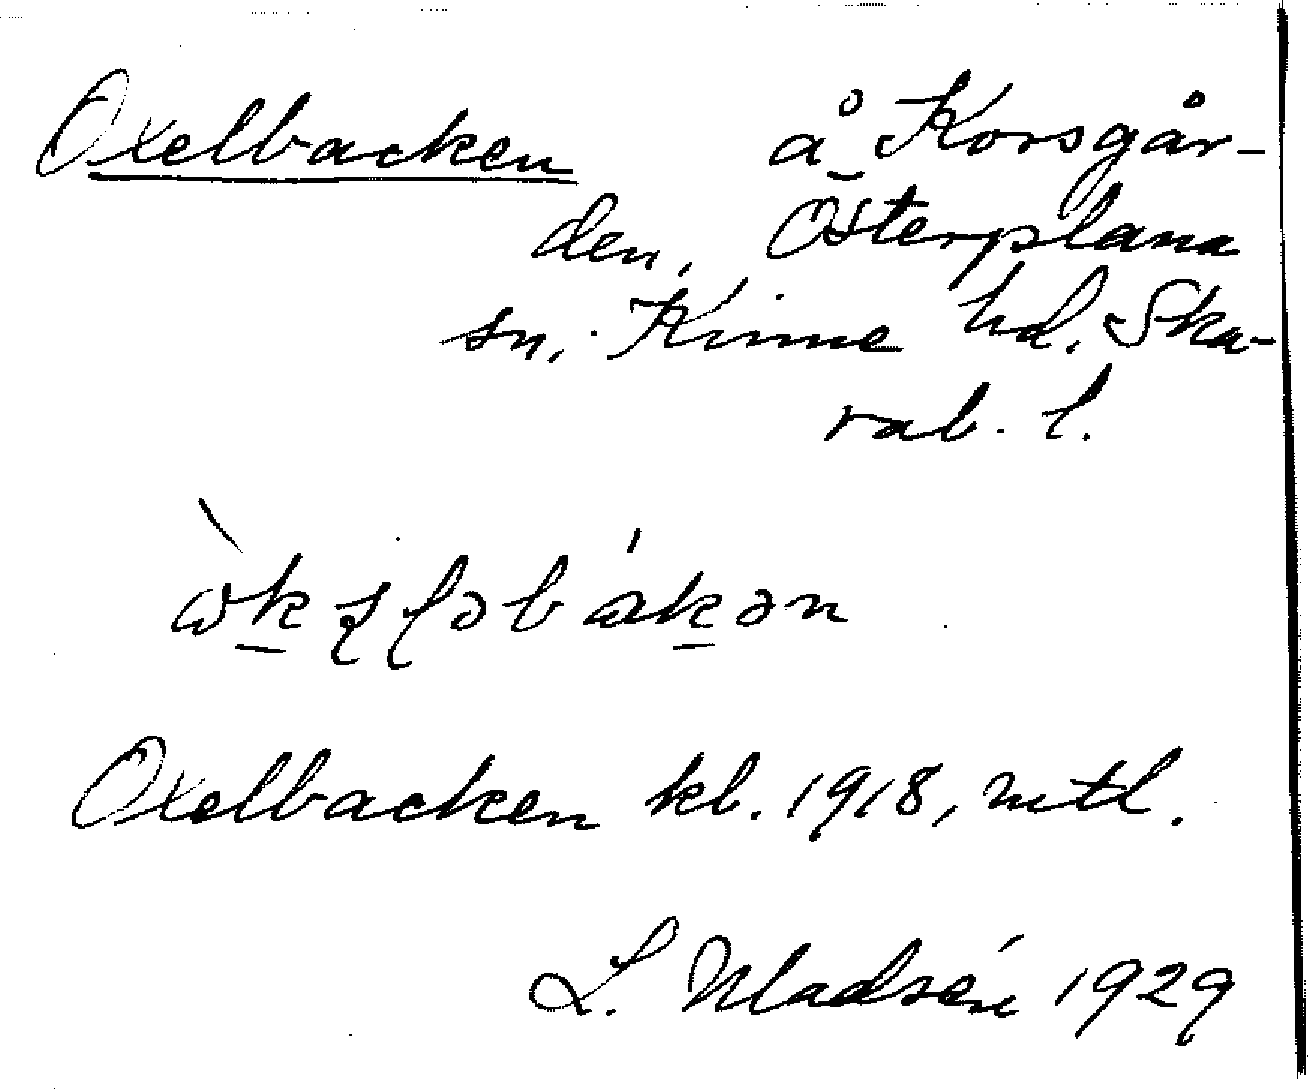 Oxelbacken å Korsgår-
den, Österplana
sn. Kinne hd. Ska-
rab. l.
Oxelbacken kb. 1918, mtl.
L. Madsén 1929